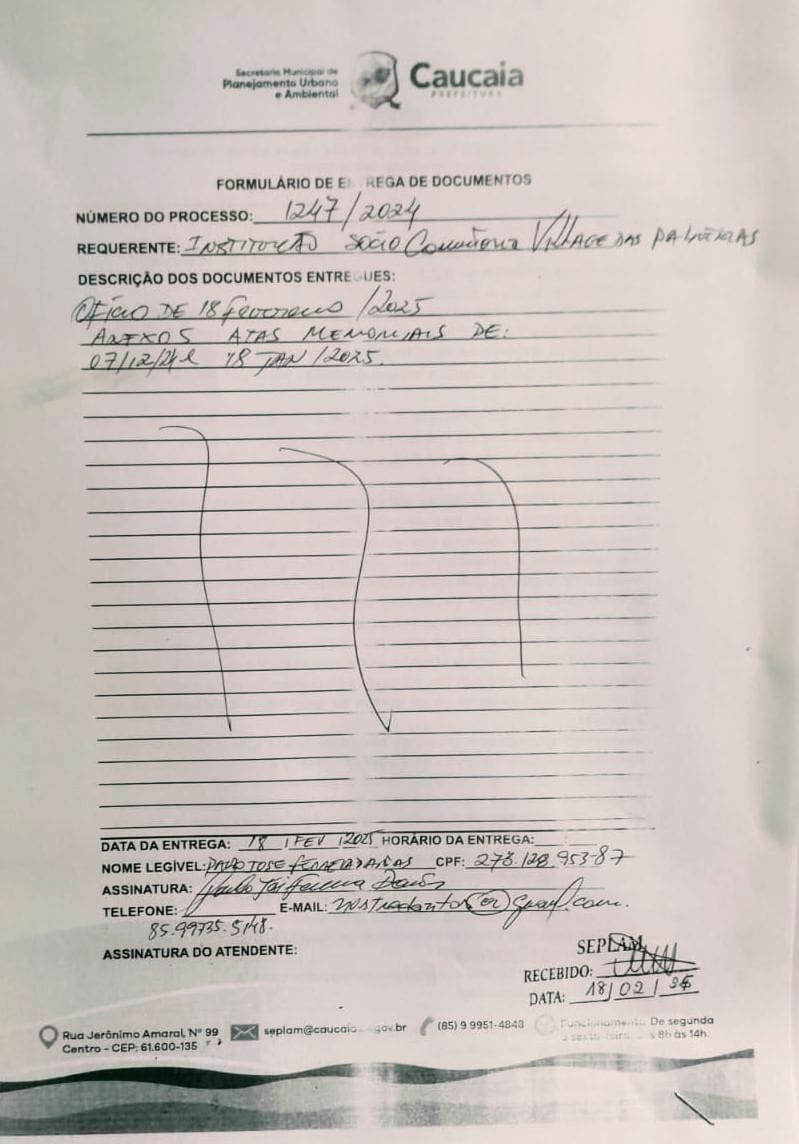 Secretaria Municipal de
Planejamento Urbano
e Ambiental
Caucaia
PREFEITURA
FORMULÁRIO DE E REGA DE DOCUMENTOS
NÚMERO DO PROCESSO: 1247/2024
REQUERENTE: INSTITUIÇÃO SOCIO COMUNITÁRIA VILLAGE DAS PALMEIRAS
DESCRIÇÃO DOS DOCUMENTOS ENTRE UES:
OFÍCIO DE 18 fevereiro /2025
ANEXOS ATAS MEMORIAIS DE:
07/12/24 e 18 JAN/2025.
DATA DA ENTREGA: 18 / FEV / 2025 HORÁRIO DA ENTREGA:
NOME LEGÍVEL: PAULO JOSE FERREIRA CPF: 278.128.953-87
ASSINATURA:
TELEFONE: E-MAIL: @gmail.com.
85.99735.5148.
ASSINATURA DO ATENDENTE:
SEPLAM
RECEBIDO:
DATA: 18/02/
Rua Jerônimo Amaral, Nº 99
Centro - CEP: 61.600-135
seplam@caucaia gov.br
(85) 9 9951-4848
Funcionamento: De segunda
a sexta-feira s 8h às 14h.